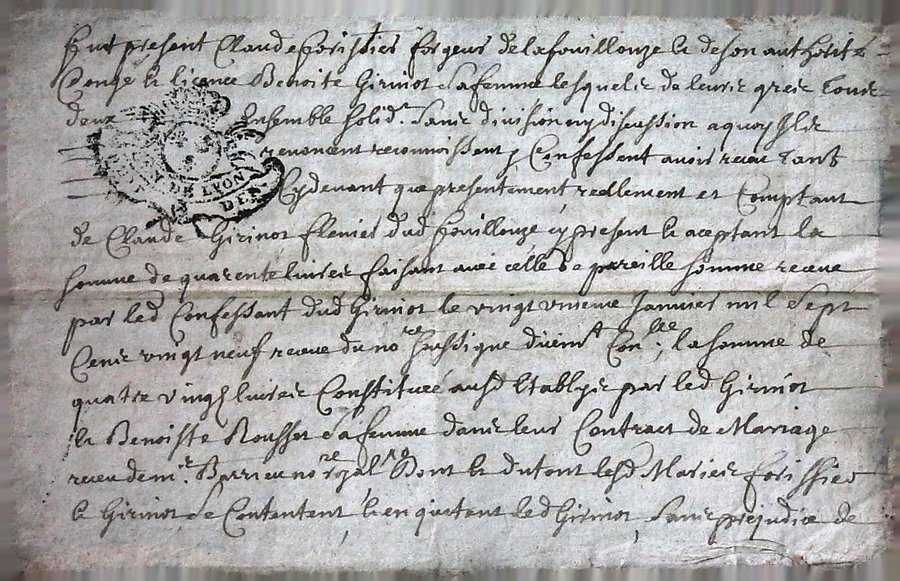 Fut present Claude forissier forgeur de la fouillouze & de son authorité
Conge & licence Benoite Girinot sa femme lesquelz de leurs grez tous
deux Ensemble solid.t sans division ny discussion a quoy Ilz
renoncent reconnoissent & Confessent avoir receu tant
Cydevant que presentement reellement et Comptant
de Claude Girinot dud fouillouze cy present & aceptant la
somme de quarente livres faisant avec celle de pareille somme receue
par led Confessant dud Girinot le vingt unieme Janvier mil sept
Cens vingt neuf receue du no.re la somme de
quatre vingt livres Constituée ausd Etablys par led Girinot
& Benoiste Rousset sa femme dans leur Contract de Mariage
receu de m.r Barrieu no.re royal dont & du tout lesd Mariez forissier
& Girinot se Contentent, & en quitent led Girinot, sans prejudice de
DE LYON